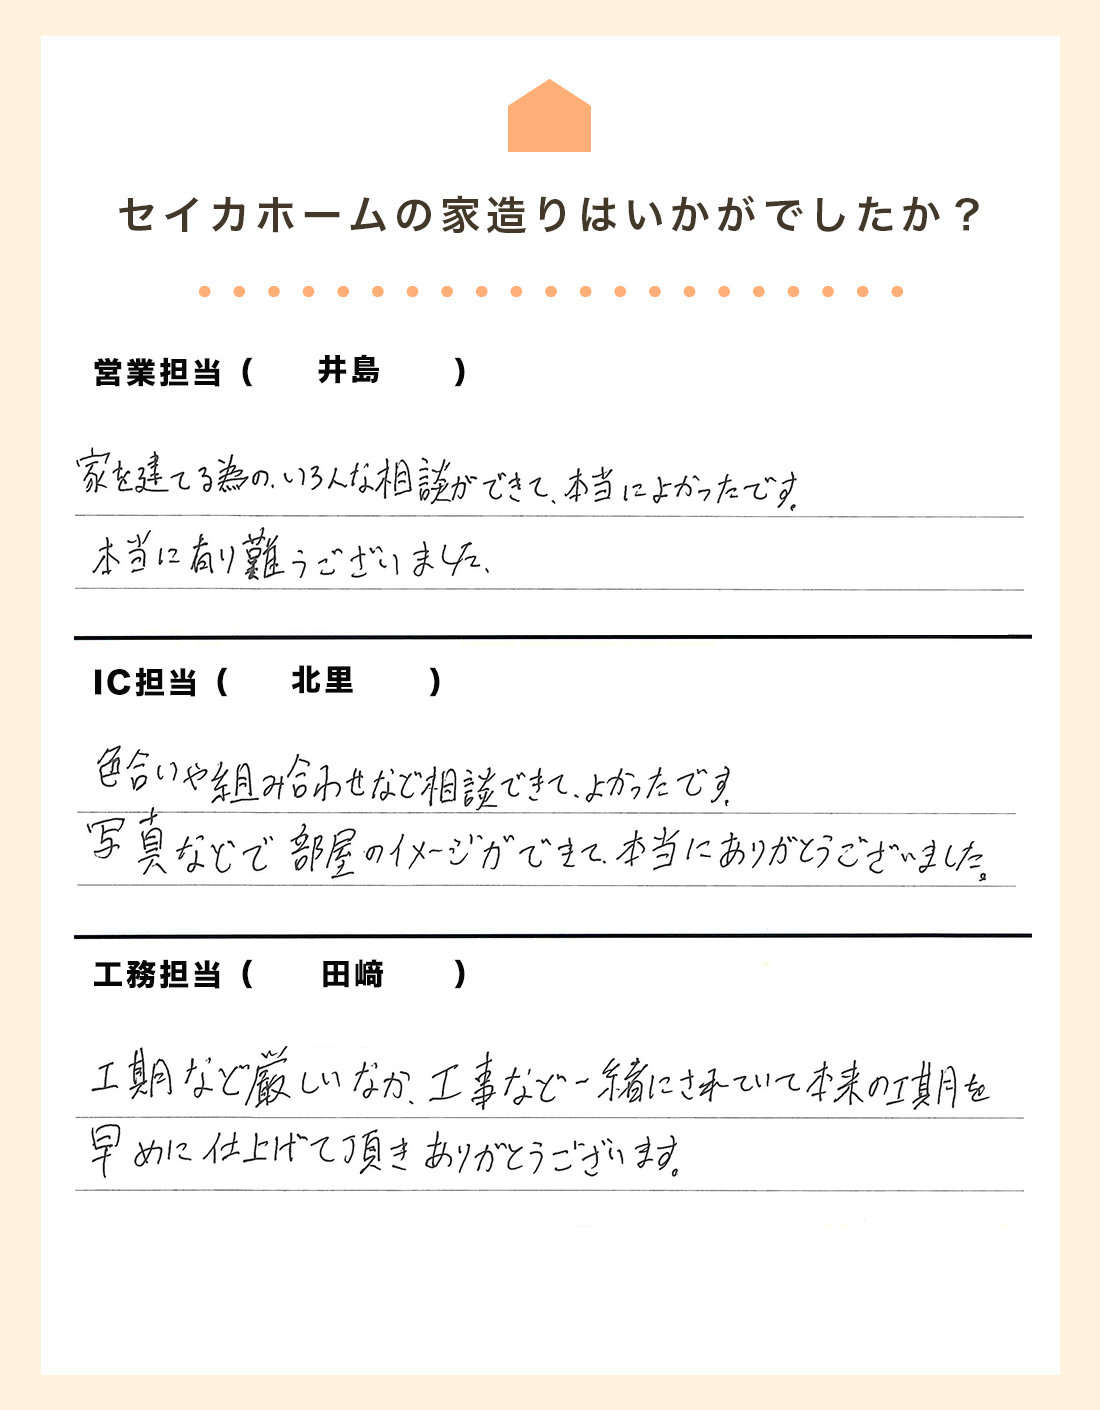 セイカホームの家造りはいかがでしたか?
営業担当( 井島 )
家を建てる為の、いろんな相談ができて、本当によかったです。
本当に有り難うございました、
IC担当( 北里 )
色合いや組み合わせなど相談できて、よかったです。
写真などで部屋のイメージができて、本当にありがとうございました。
工務担当( 田﨑 )
工期など厳しいなか、工事など一緒にされていて本来の工期を
早めに仕上げて頂きありがとうございます。